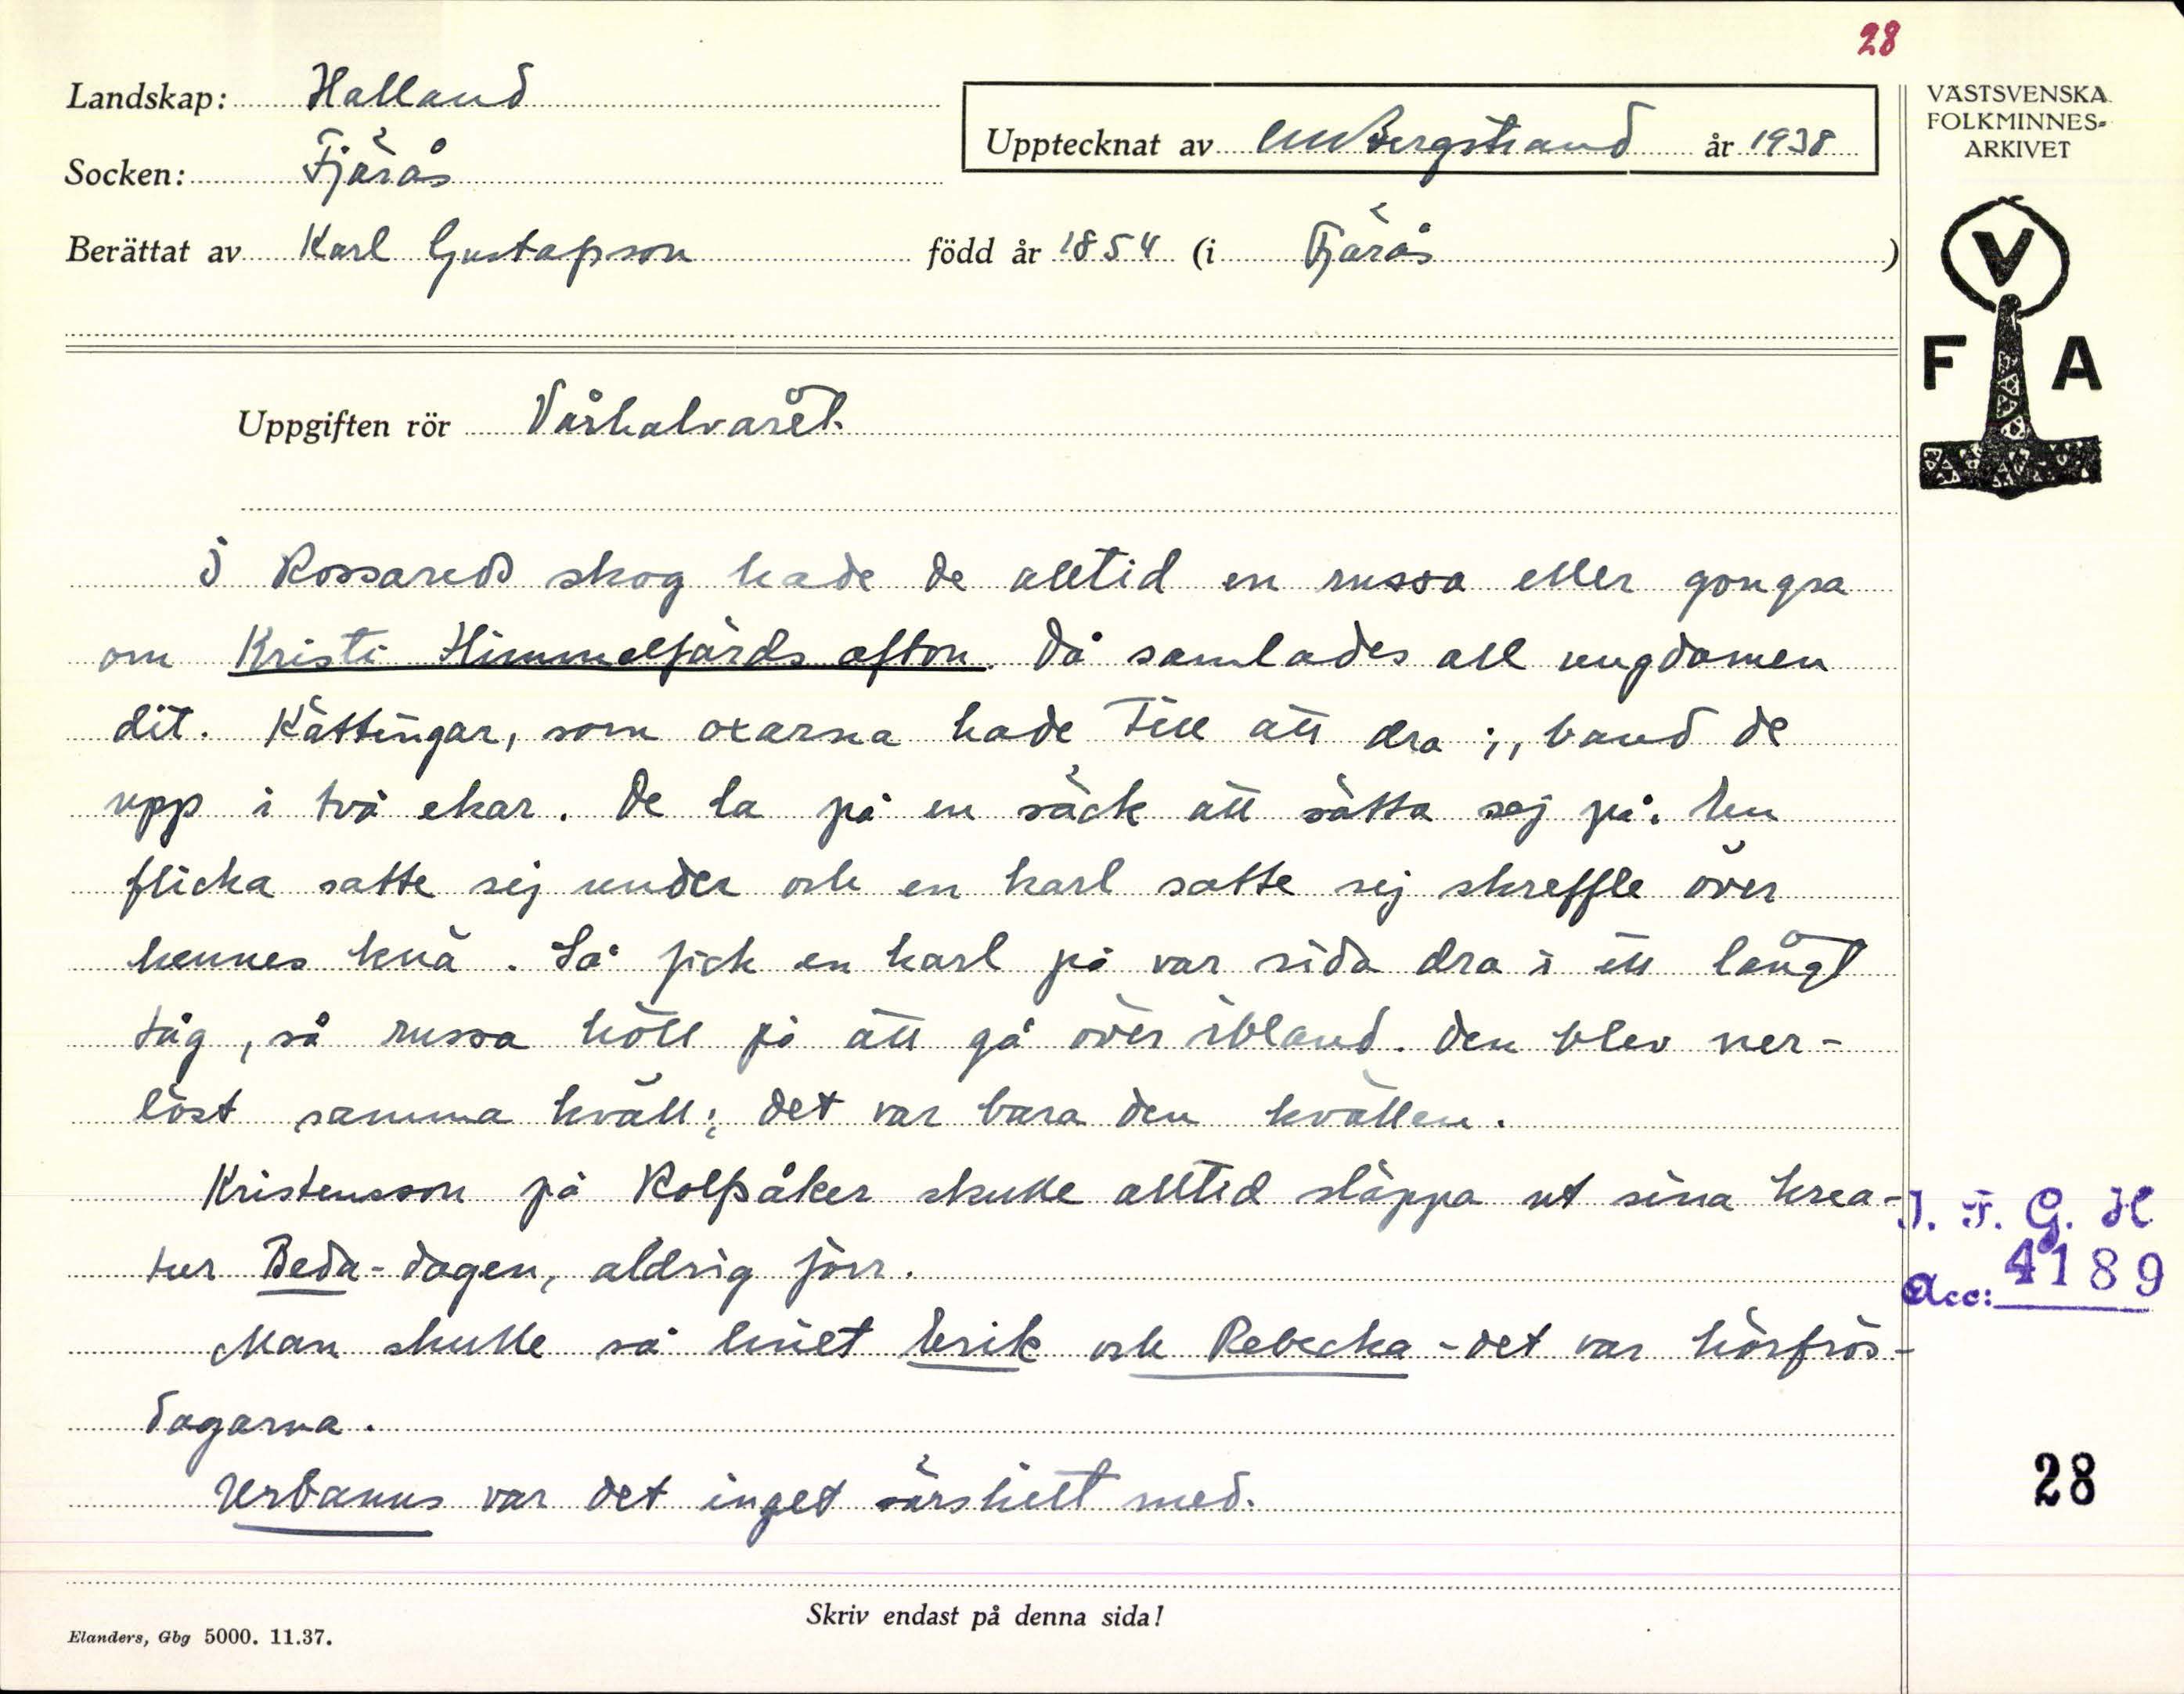 28
Landskap: Halland
Upptecknat av CM Bergstrand år 1938
VÄSTSVENSKA
FOLKMINNES-
ARKIVET
Socken: Fjärås
Berättat av Karl Gustafsson född år 1854 (i Fjärås )
V
F A
Uppgiften rör Vårhalvåret.
I Rossareds skog hade de alltid en russa eller gongsa
om Kristi Himmelfärds afton. Då samlades all ungdomen
dit. Kättingar, som oxarna hade till att dra i, band de
upp i två ekar. De la på en säck att sätta sej på. En
flicka satte sej under och en karl satte sej skreffle över
hennes knä. Så fick en karl på var sida dra i ett långt
tåg, så russa höll på att gå över ibland. Den blev ner-
löst samma kväll; det var bara den kvällen.
Kristensson på Rolfsåker skulle alltid släppa ut sina krea-
tur Beda-dagen, aldrig förr.
Man skulle så linet Erik och Rebecka - det var hörfrös-
dagarna.
Urbanus var det inget särskilt med.
I. F. G. H
Acc: 4189
28
Skriv endast på denna sida!
Elanders, Gbg 5000. 11.37.